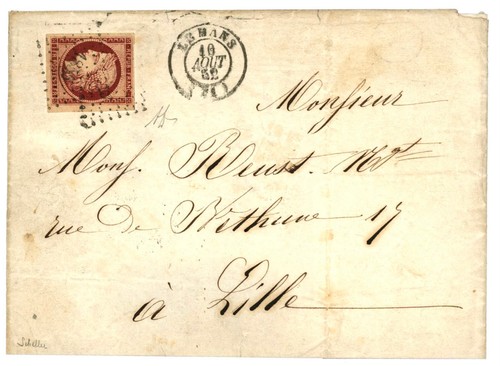 LE MANS
10
AOUT
52
Monsieur
Mons. Reust. Nt
rue de Béthune 17
à Lille